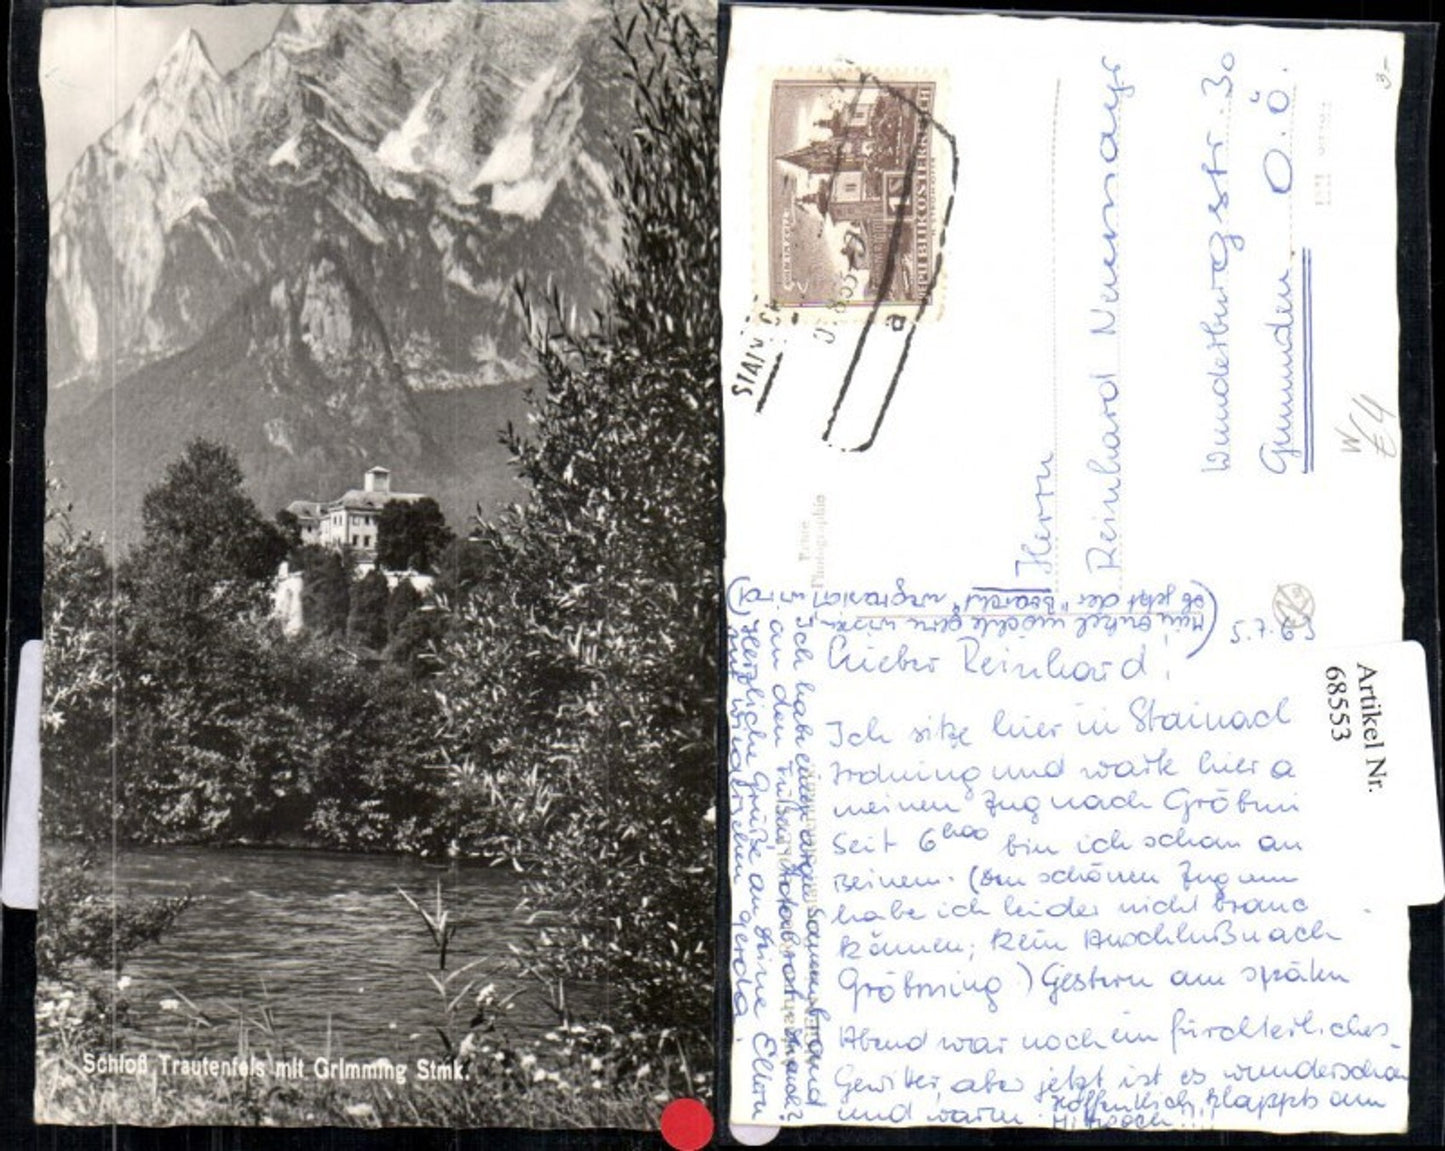 Schloß Trautenfels mit Grimming Stmk.
REPUBLIK ÖSTERREICH
STAINACH
a
Echte
Photographie
Herrn
Reinhard Neumayr
Wunderburgstr. 30
Gmunden O.Ö.
3-
Artikel Nr.
68553
5.7.63
Lieber Reinhard,
Ich sitze hier in Stainach
und warte hier a
meinen Zug nach Gröbmi
Seit 6 hoo bin ich schon an
Beinen. (Den schönen Zug
habe ich leider nicht brauc
können; kein Anschluß nach
Gröbming) Gestern am späten
Abend war noch ein fürchterliches
Gewitter, aber jetzt ist es wunderschön
und warm. Hoffentlich klappts am
Mittwoch!!!
Ich habe einen argen Sonnenbrand
an den Füßen
Herzliche Grüße an Deine Eltern
und Gerda.
(Mein Onkel möchte gern wissen,
ob jetzt der "Boarisch" wegrasiert wird)